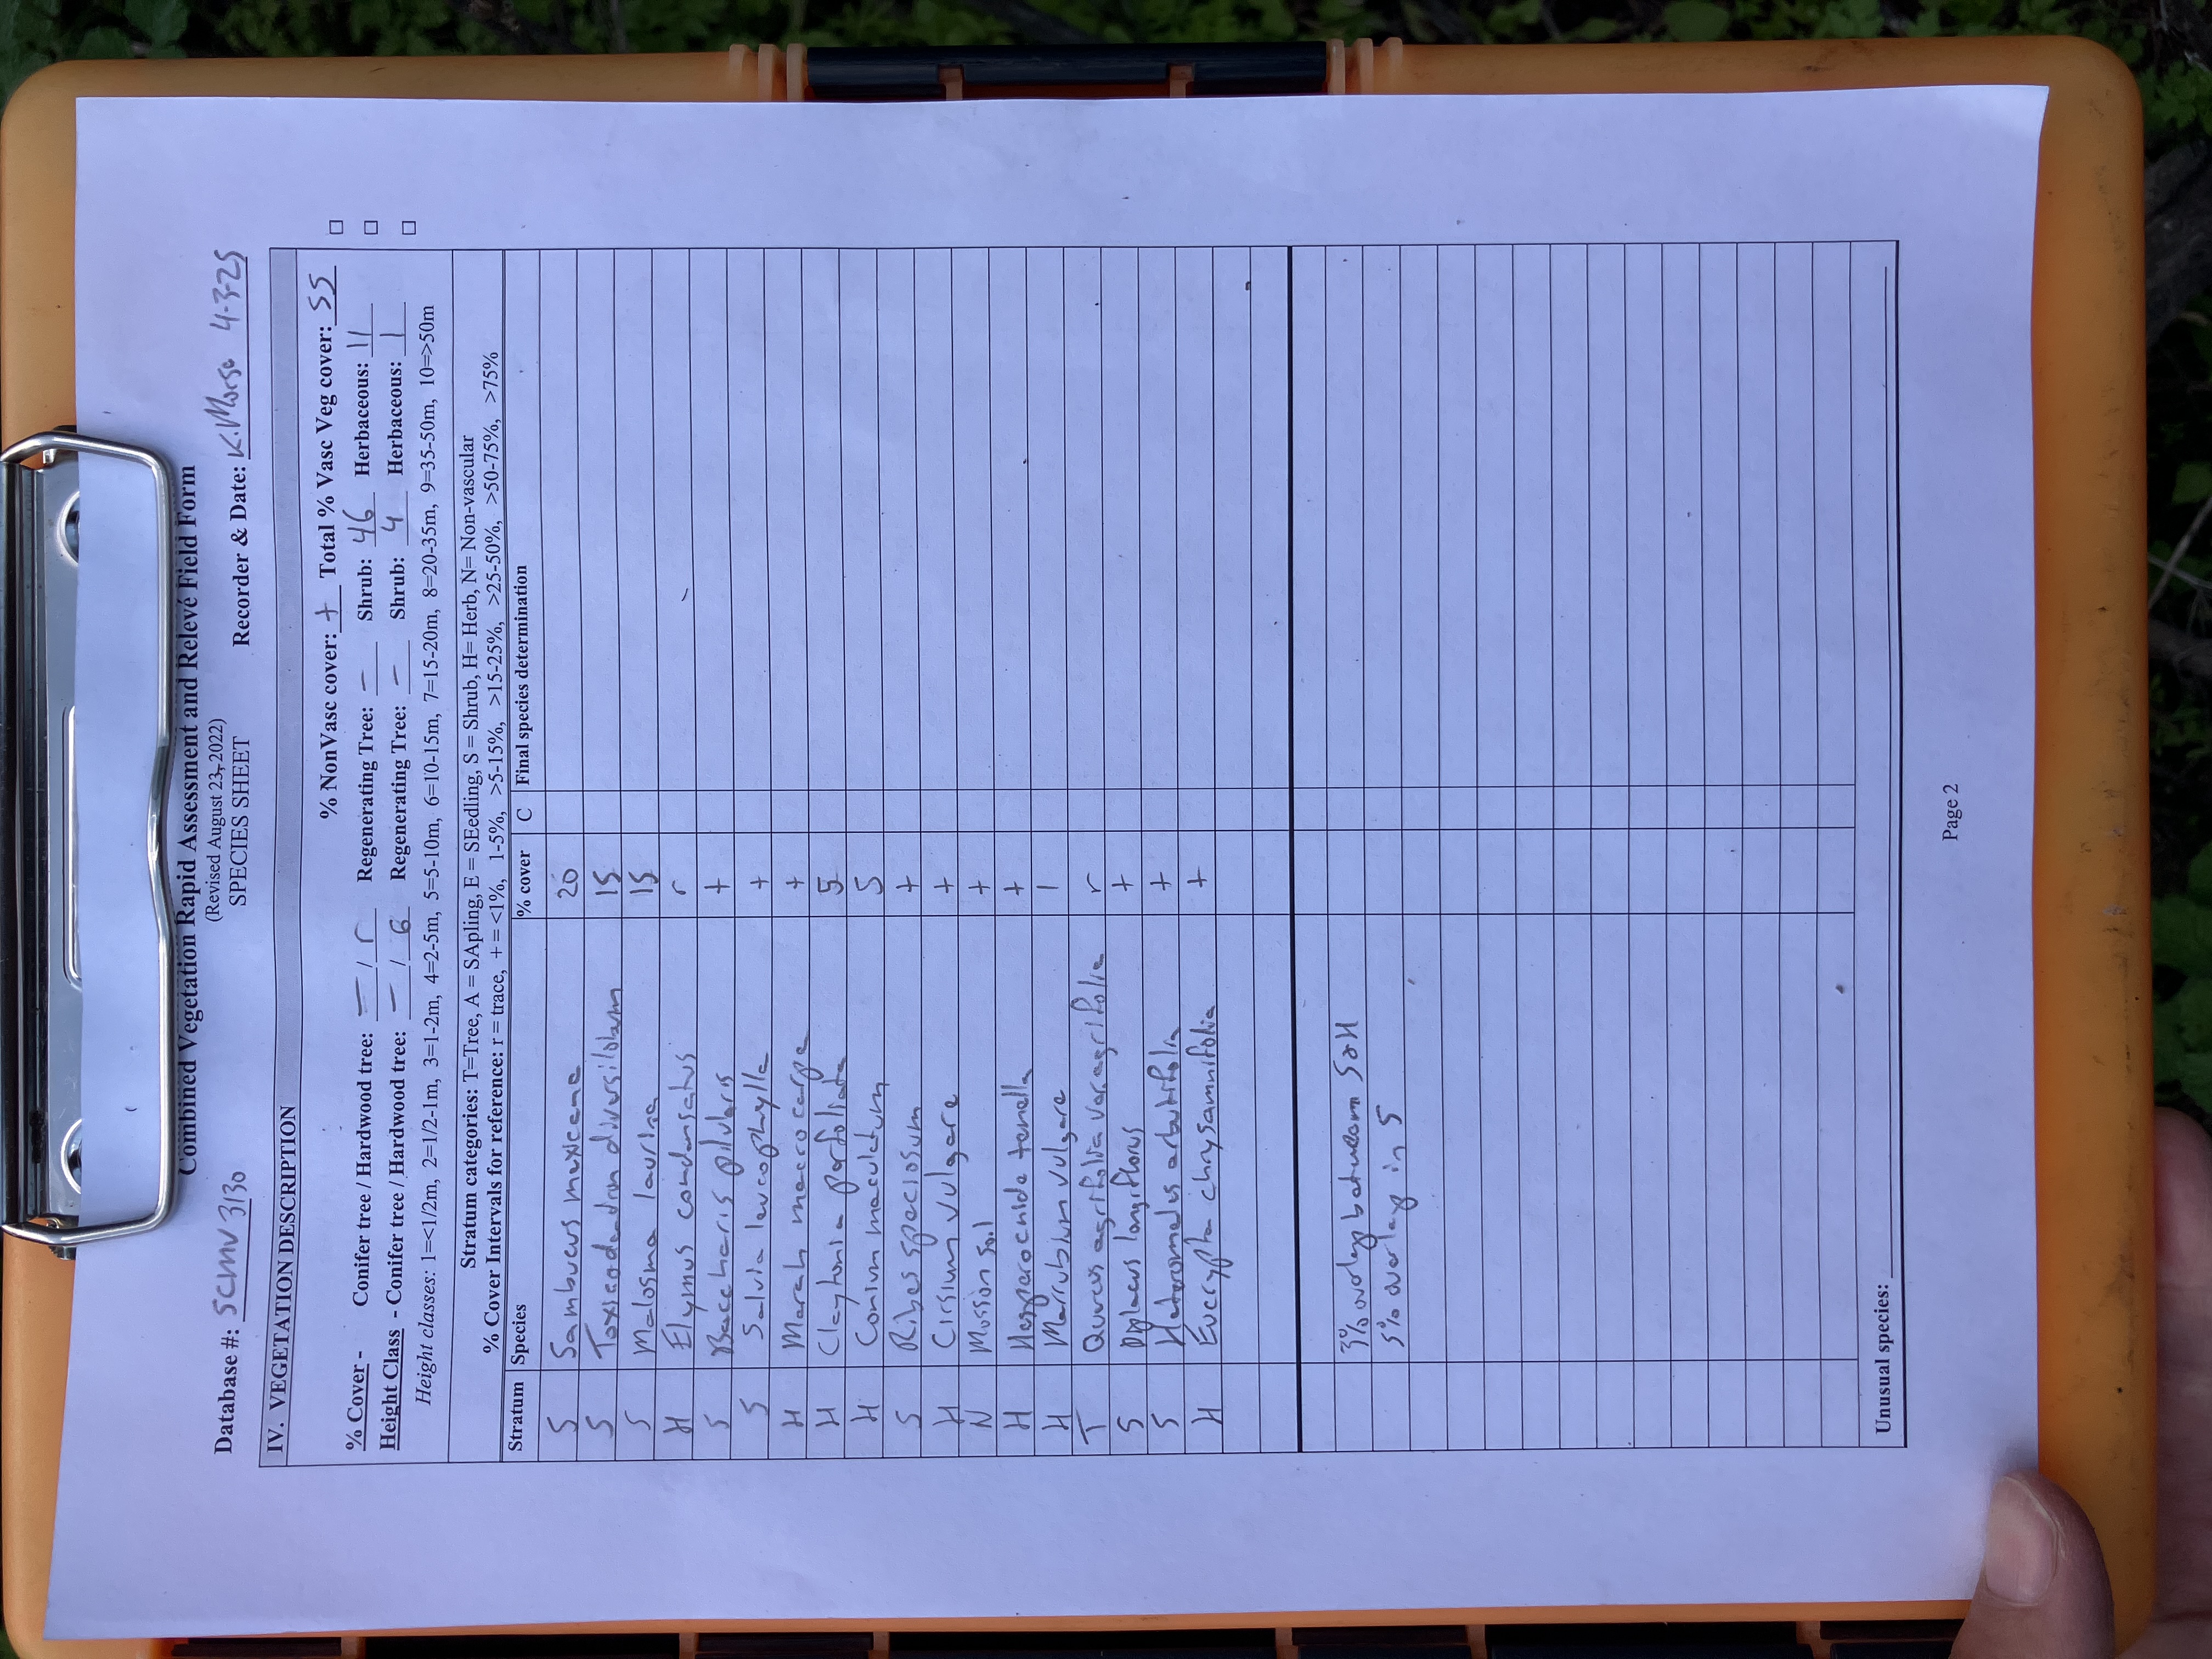 Combined Vegetation Rapid Assessment and Relevé Field Form
(Revised August 23, 2022)
Database #: SCMV 3130 SPECIES SHEET Recorder & Date: K. Morse 4-3-25
IV. VEGETATION DESCRIPTION
% NonVasc cover: + Total % Vasc Veg cover: 55 □
% Cover - Conifer tree / Hardwood tree: — / r Regenerating Tree: — Shrub: 46 Herbaceous: 11 □
Height Class - Conifer tree / Hardwood tree: — / 6 Regenerating Tree: — Shrub: 4 Herbaceous: 1 □
Height classes: 1=<1/2m, 2=1/2-1m, 3=1-2m, 4=2-5m, 5=5-10m, 6=10-15m, 7=15-20m, 8=20-35m, 9=35-50m, 10=>50m
Stratum categories: T=Tree, A = SApling, E = SEedling, S = Shrub, H= Herb, N= Non-vascular
% Cover Intervals for reference: r = trace, + = <1%, 1-5%, >5-15%, >15-25%, >25-50%, >50-75%, >75%
Stratum Species % cover C Final species determination
S Sambucus mexicana 20
S Toxicodendron diversilobum 15
S Malosma laurina 15
H Elymus condensatus r
S Baccharis pilularis +
S Salvia leucophylla +
H Marah macrocarpa +
H Claytonia perfoliata 5
H Conium maculatum 5
S Ribes speciosum +
H Cirsium vulgare +
N Moss on soil +
H Hesperocnide tenella +
H Marrubium vulgare 1
T Quercus agrifolia var. agrifolia r
S Diplacus longiflorus +
S Heteromeles arbutifolia +
H Eucrypta chrysanthifolia +
3% overlap between S&H
5% overlap in S
Unusual species:
Page 2